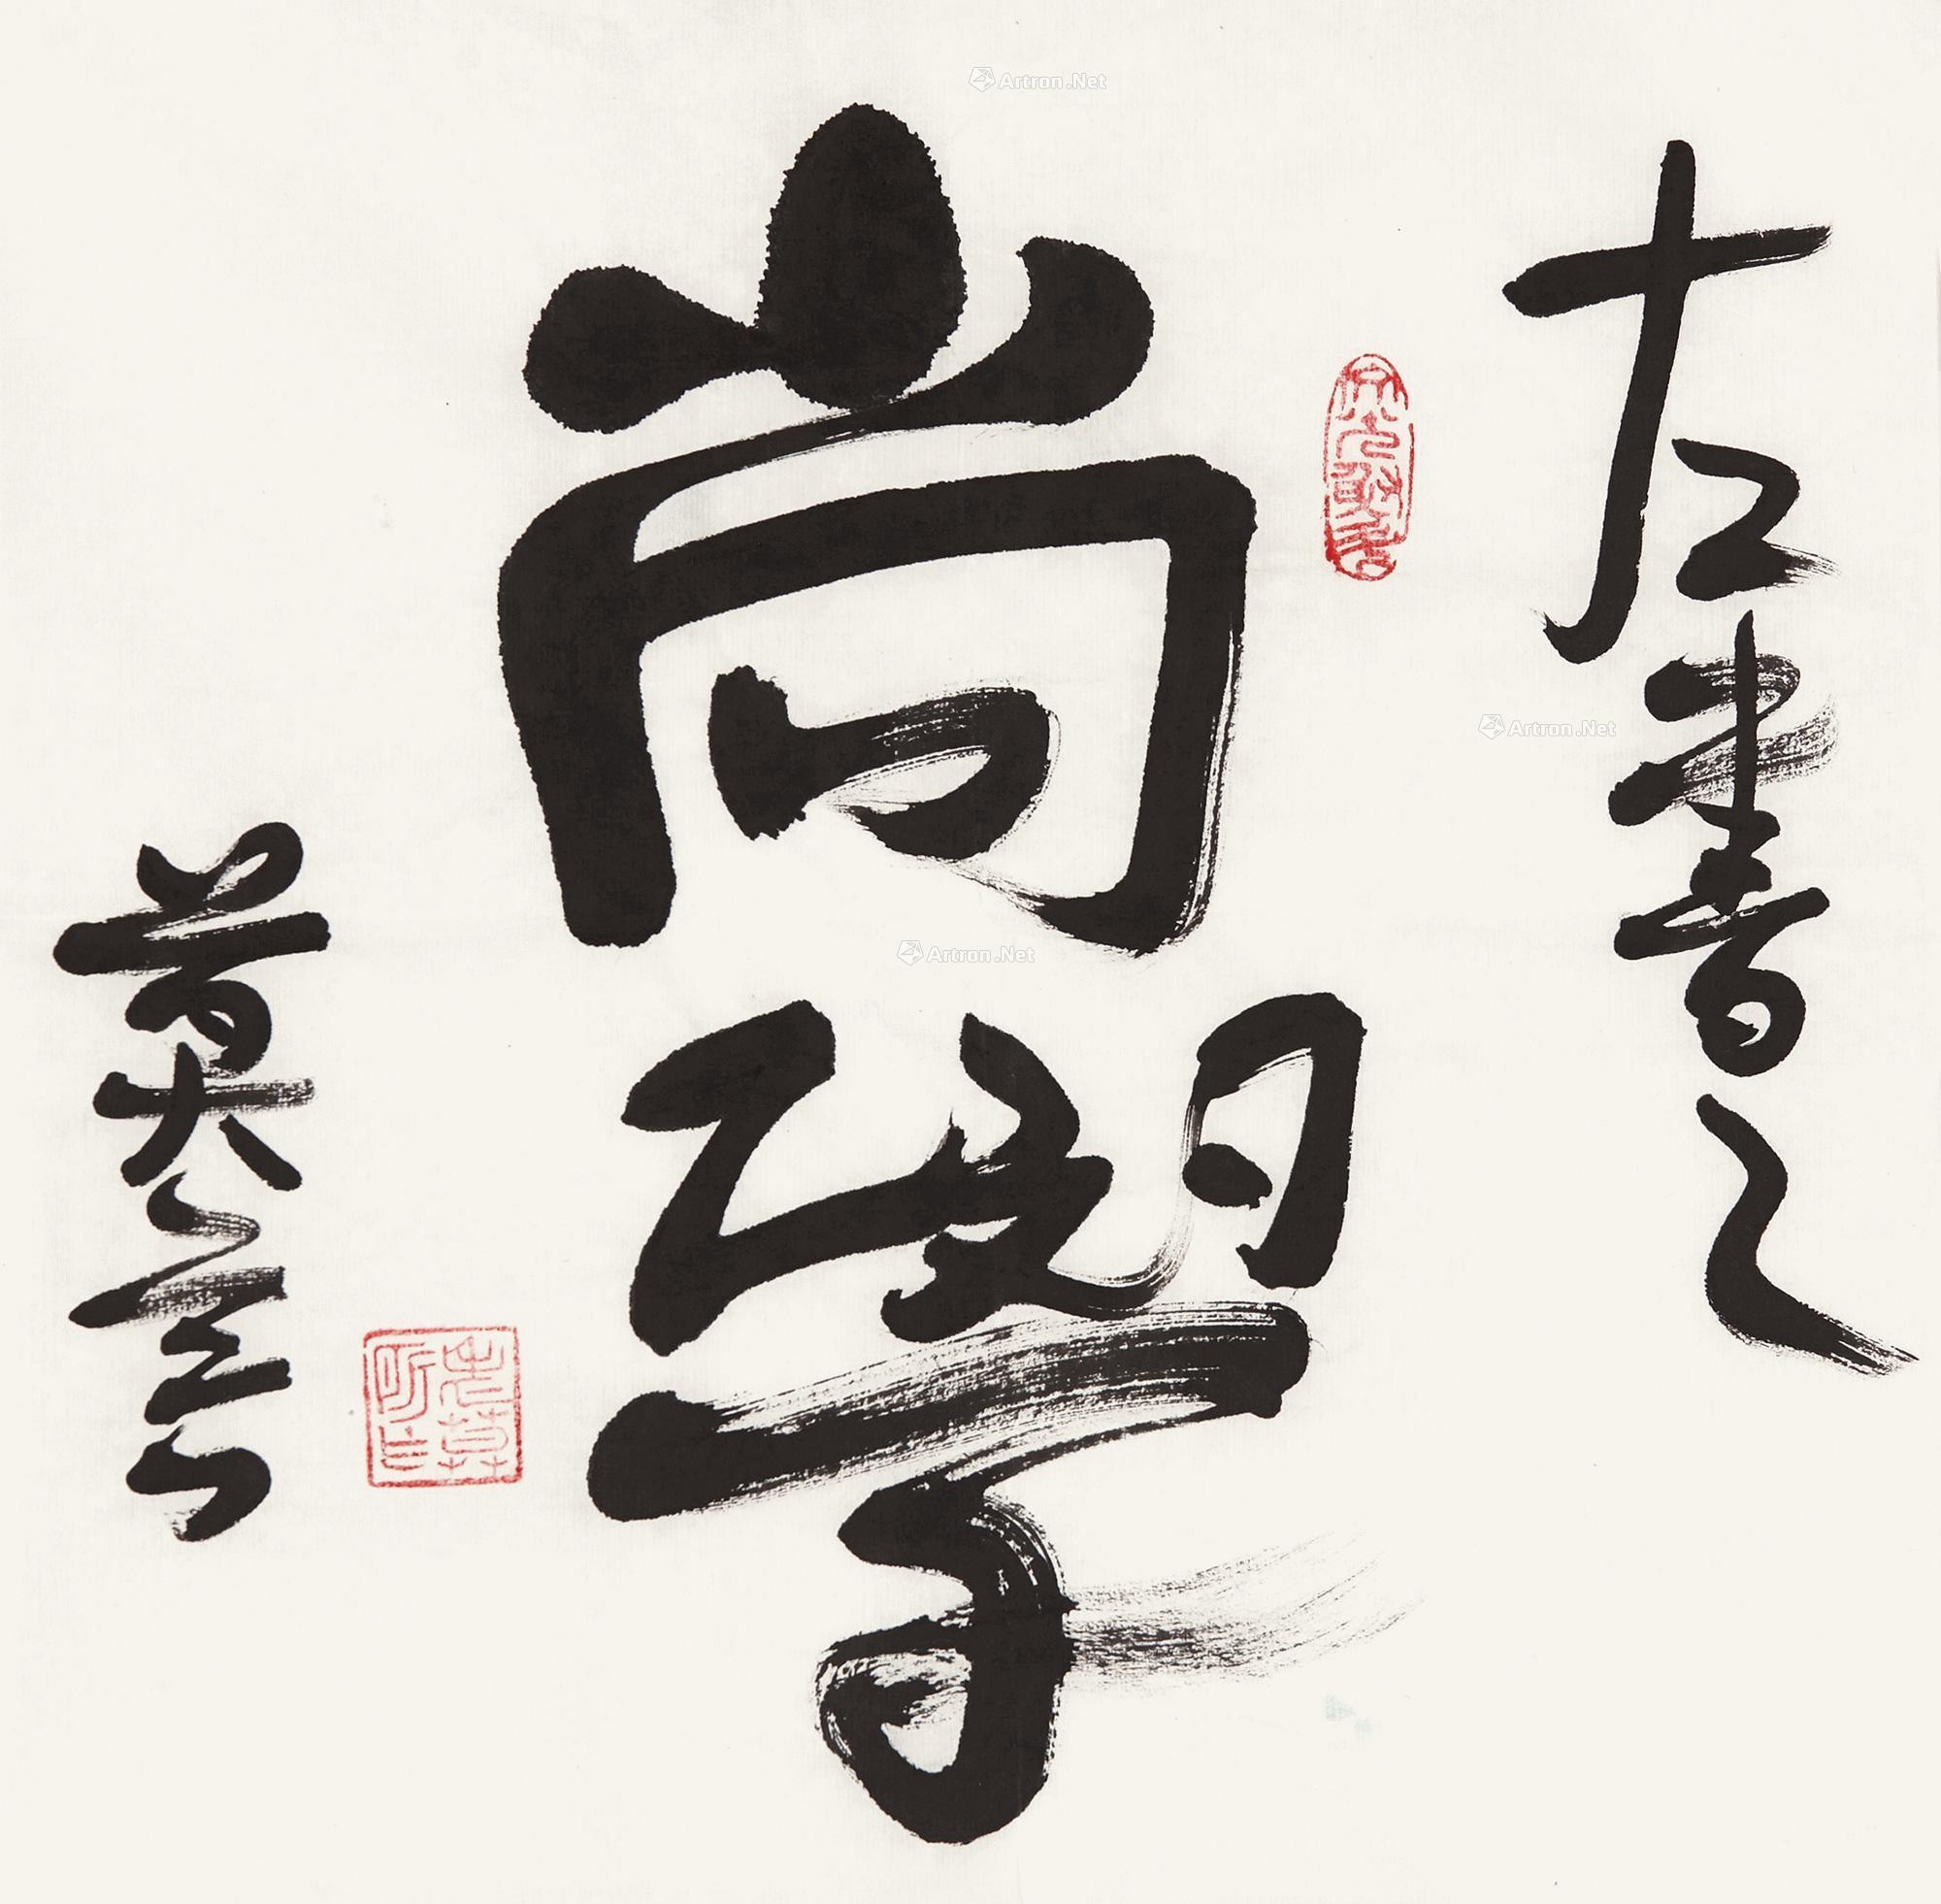 左書之
尚學
莫言
Artron.Net
Artron.Net
Artron.Net